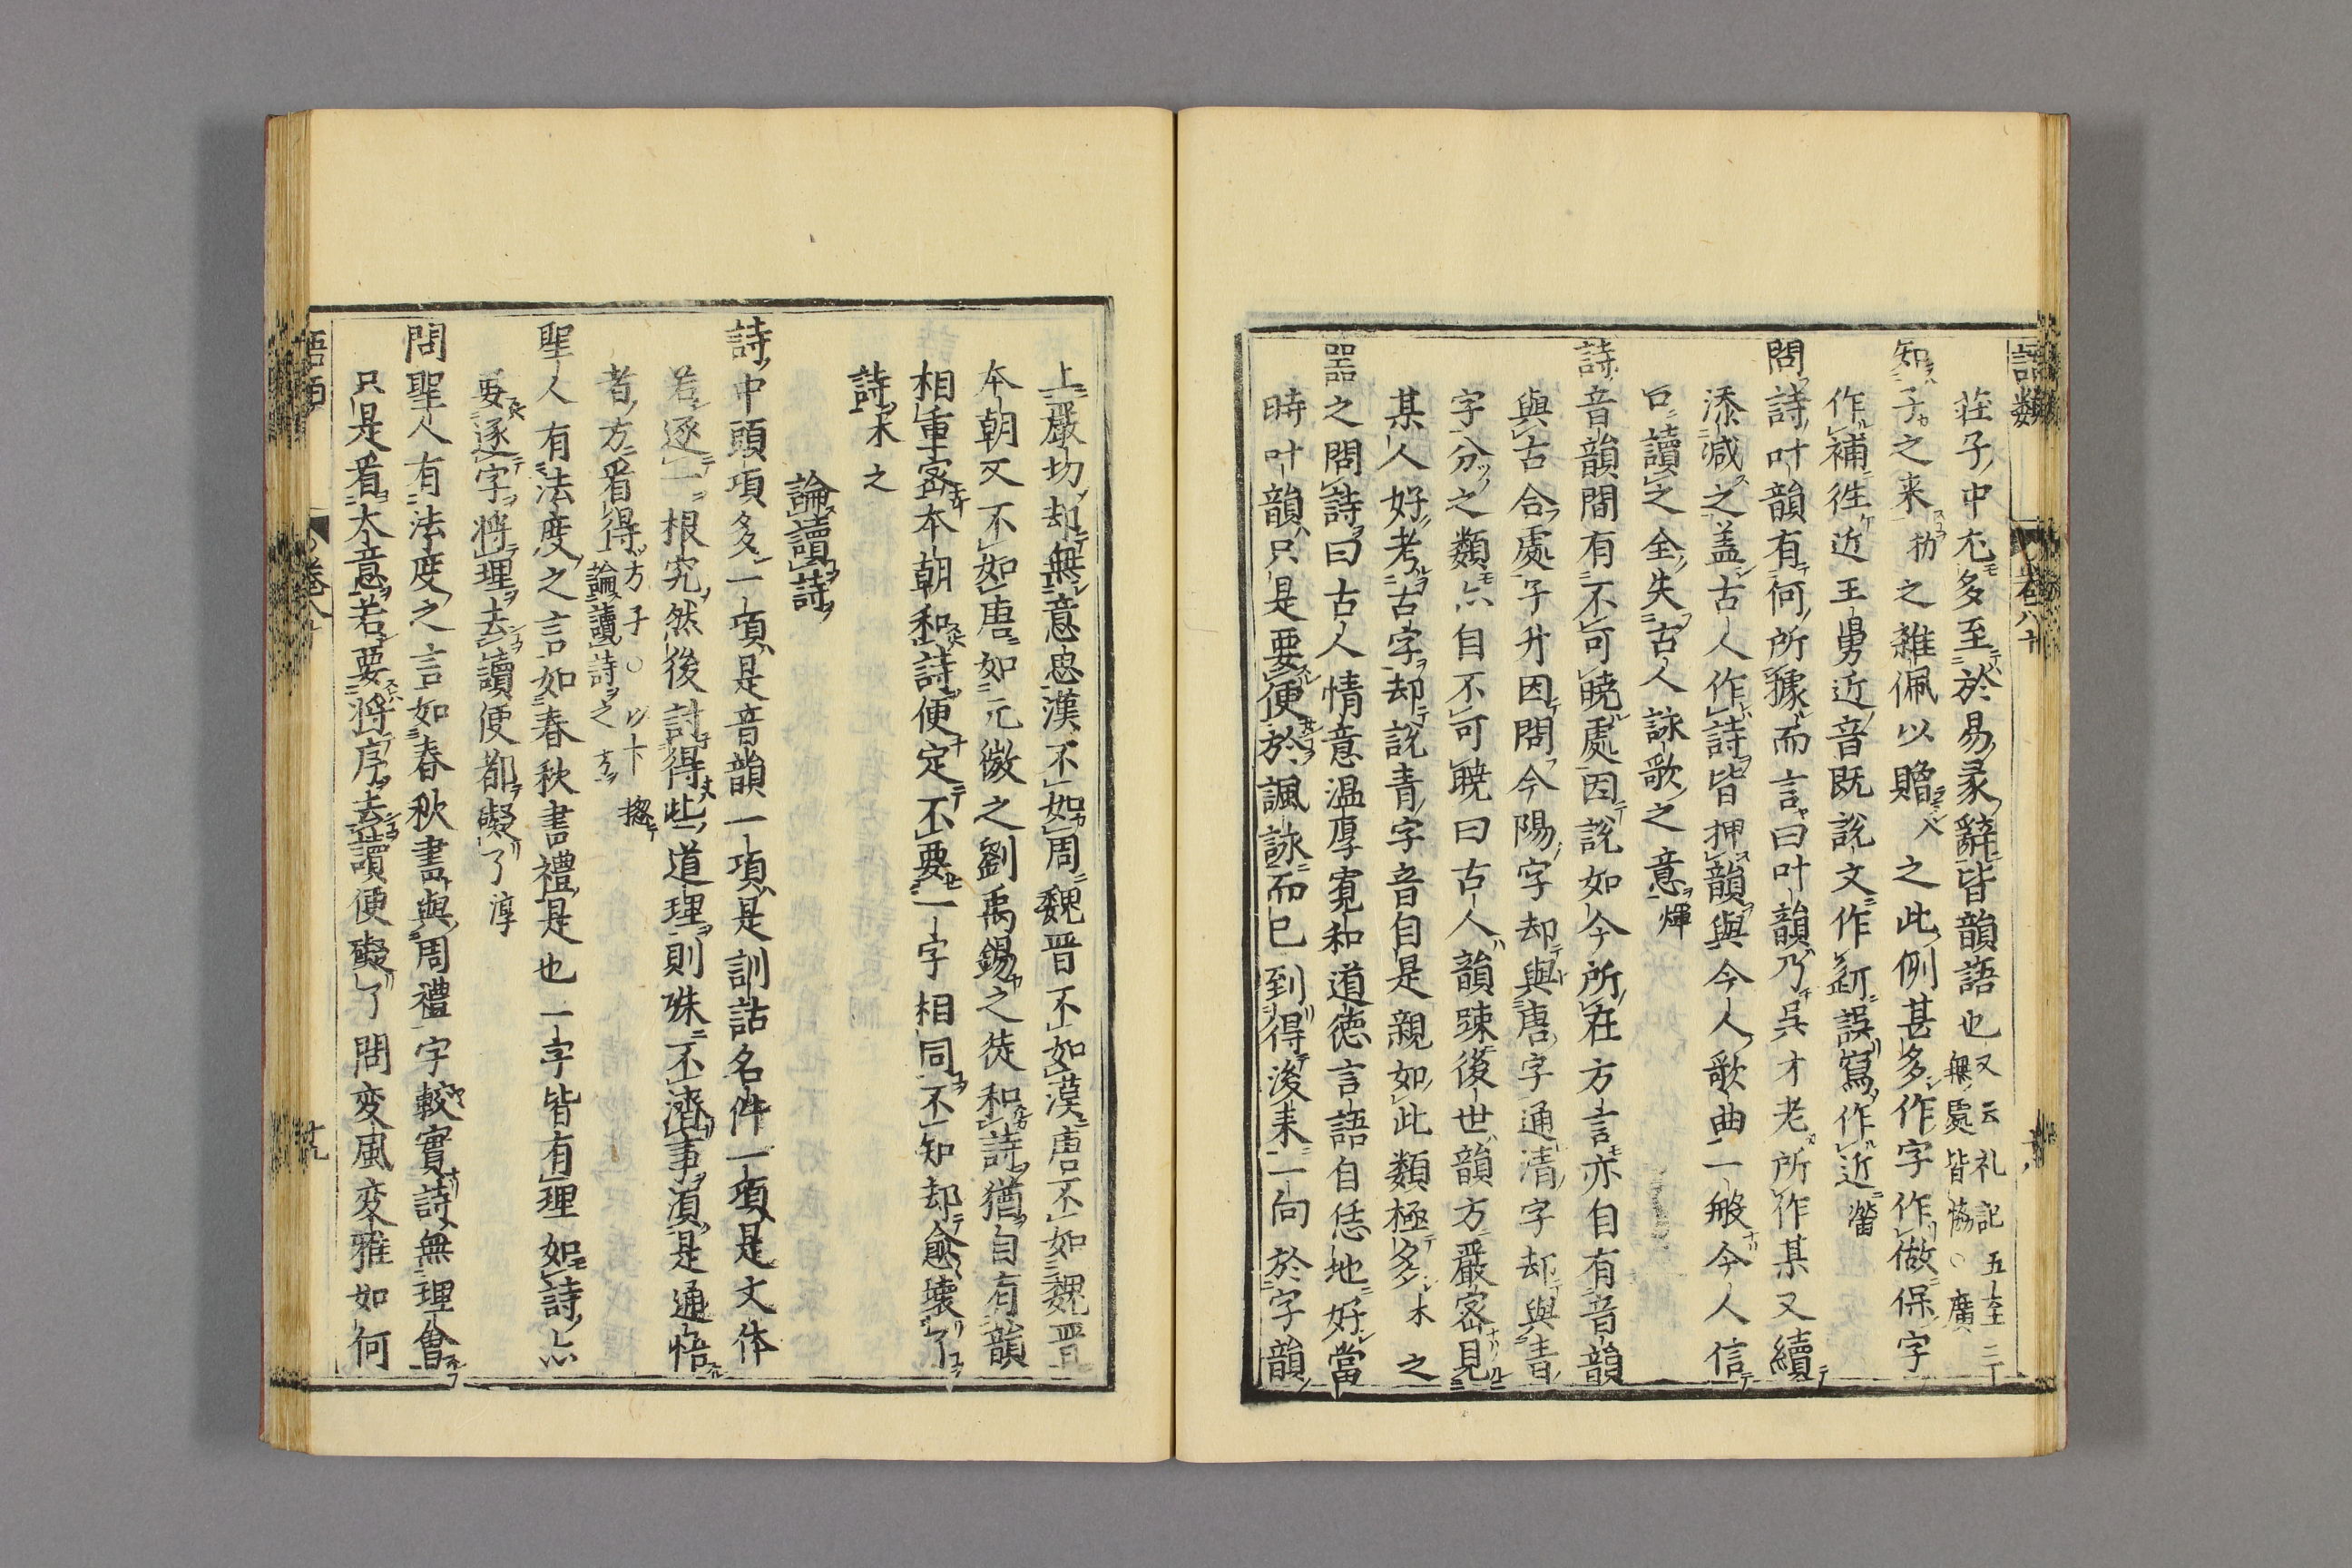 語類
卷八十
莊子中尤多至於易彖辭皆韻語也又云礼記五至三
無處皆協○廣
知子之来扐之雜佩以贈之此例甚多作字作做保字
作補徃近王舅近音既說文作𧗳誤寫作近㽦
問詩叶韻有何所㩀而言曰叶韻乃吳才老所作某又續
添减之盖古人作詩皆押韻與今人歌曲一般今人信
口讀之全失古人詠歌之意煇
詩音韻間有不可曉處因說如今所在方言亦自有音韻
與古合處子升因問今陽字却與唐字通清字却與青
字分之類亦自不可曉曰古人韻踈後世韻方嚴宻見
某人好考古字却說青字音自是親如此類極多木之
器之問詩曰古人情意温厚寛和道德言語自恁地好當
時叶韻只是要便於諷詠而已到得後来一向於字韻
上嚴切却無意思漢不如周魏晋不如漢唐不如魏晋
本朝又不如唐如元微之劉禹錫之徒和詩猶自有韻
相重宻本朝和詩便定不要一字相同不知却愈壊了
詩木之
論讀詩
詩中頭項多一項是音韻一項是訓詁名件一項是文体
若逐一根究然後討得些道理則殊不濟事湏是通悟
者方看得方子○以下揔
論讀詩之方
聖人有法度之言如春秋書禮是也一字皆有理如詩亦
要逐字將理去讀便都礙了淳
問聖人有法度之言如春秋書與周禮字較實詩無理會
只是看大意若要將序去讀便礙了問变風变雅如何
卷八十